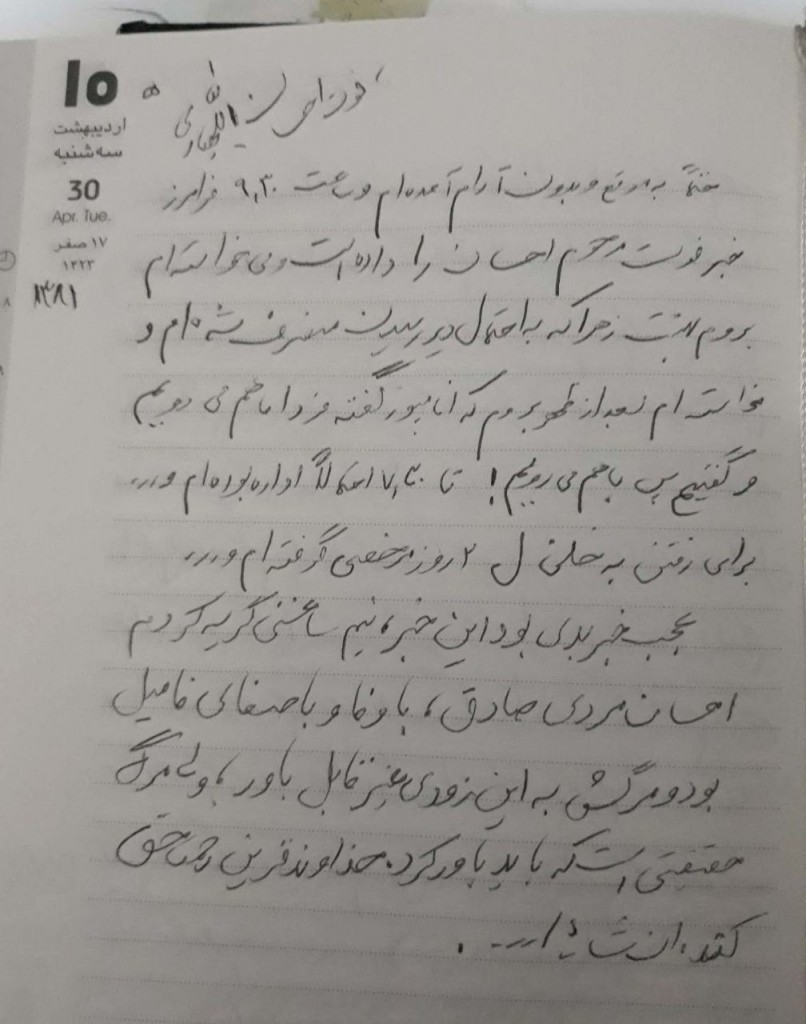 ۱۰
اردیبهشت
سه‌شنبه
30
Apr. Tue.
۱۷ صفر
۱۴۲۳
۱۳۸۱
فوت احسان
به موقع و بدون آرام آمده‌ام و ساعت ۹٫۳۰ فرامرز
خبر فوت مرحوم احسان را داده است و می‌خواسته‌ام
بروم بهشت زهرا که به احتمال دیر رسیدن منصرف شده‌ام و
خواسته‌ام بعد از ظهر بروم که گفته فردا با هم می رویم
و گفتیم پس با هم می رویم! تا ۷٫۳۰ احتمالاً اداره بوده‌ام و...
برای رفتن به ۲ روز مرخصی گرفته‌ام و...
عجب خبر بدی بود این خبر، نیم ساعتی گریه کردم
احسان مردی صادق، با وفا و با صفای فامیل
بود و مرگش به این زودی غیر قابل باور، ولی مرگ
حقیقتی است که باید باور کرد. خداوند قرین رحمت حق
کند، انشاءا... .